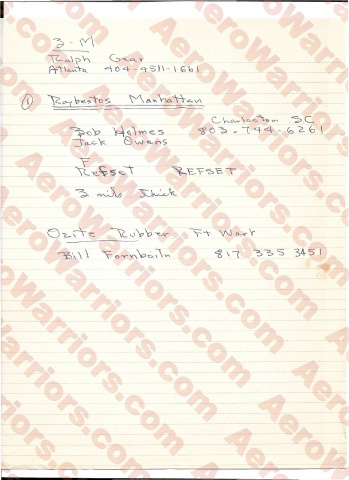 3-M
Ralph Gray
Atlanta 404-451-1661
① Raybestos Manhattan
Charleston SC
Bob Holmes 803-744-6261
Jack Owens
F
Refset REFSET
3 mils thick
Ozite Rubber Ft Wort
Bill 817 335 3451
AeroWarriors.com